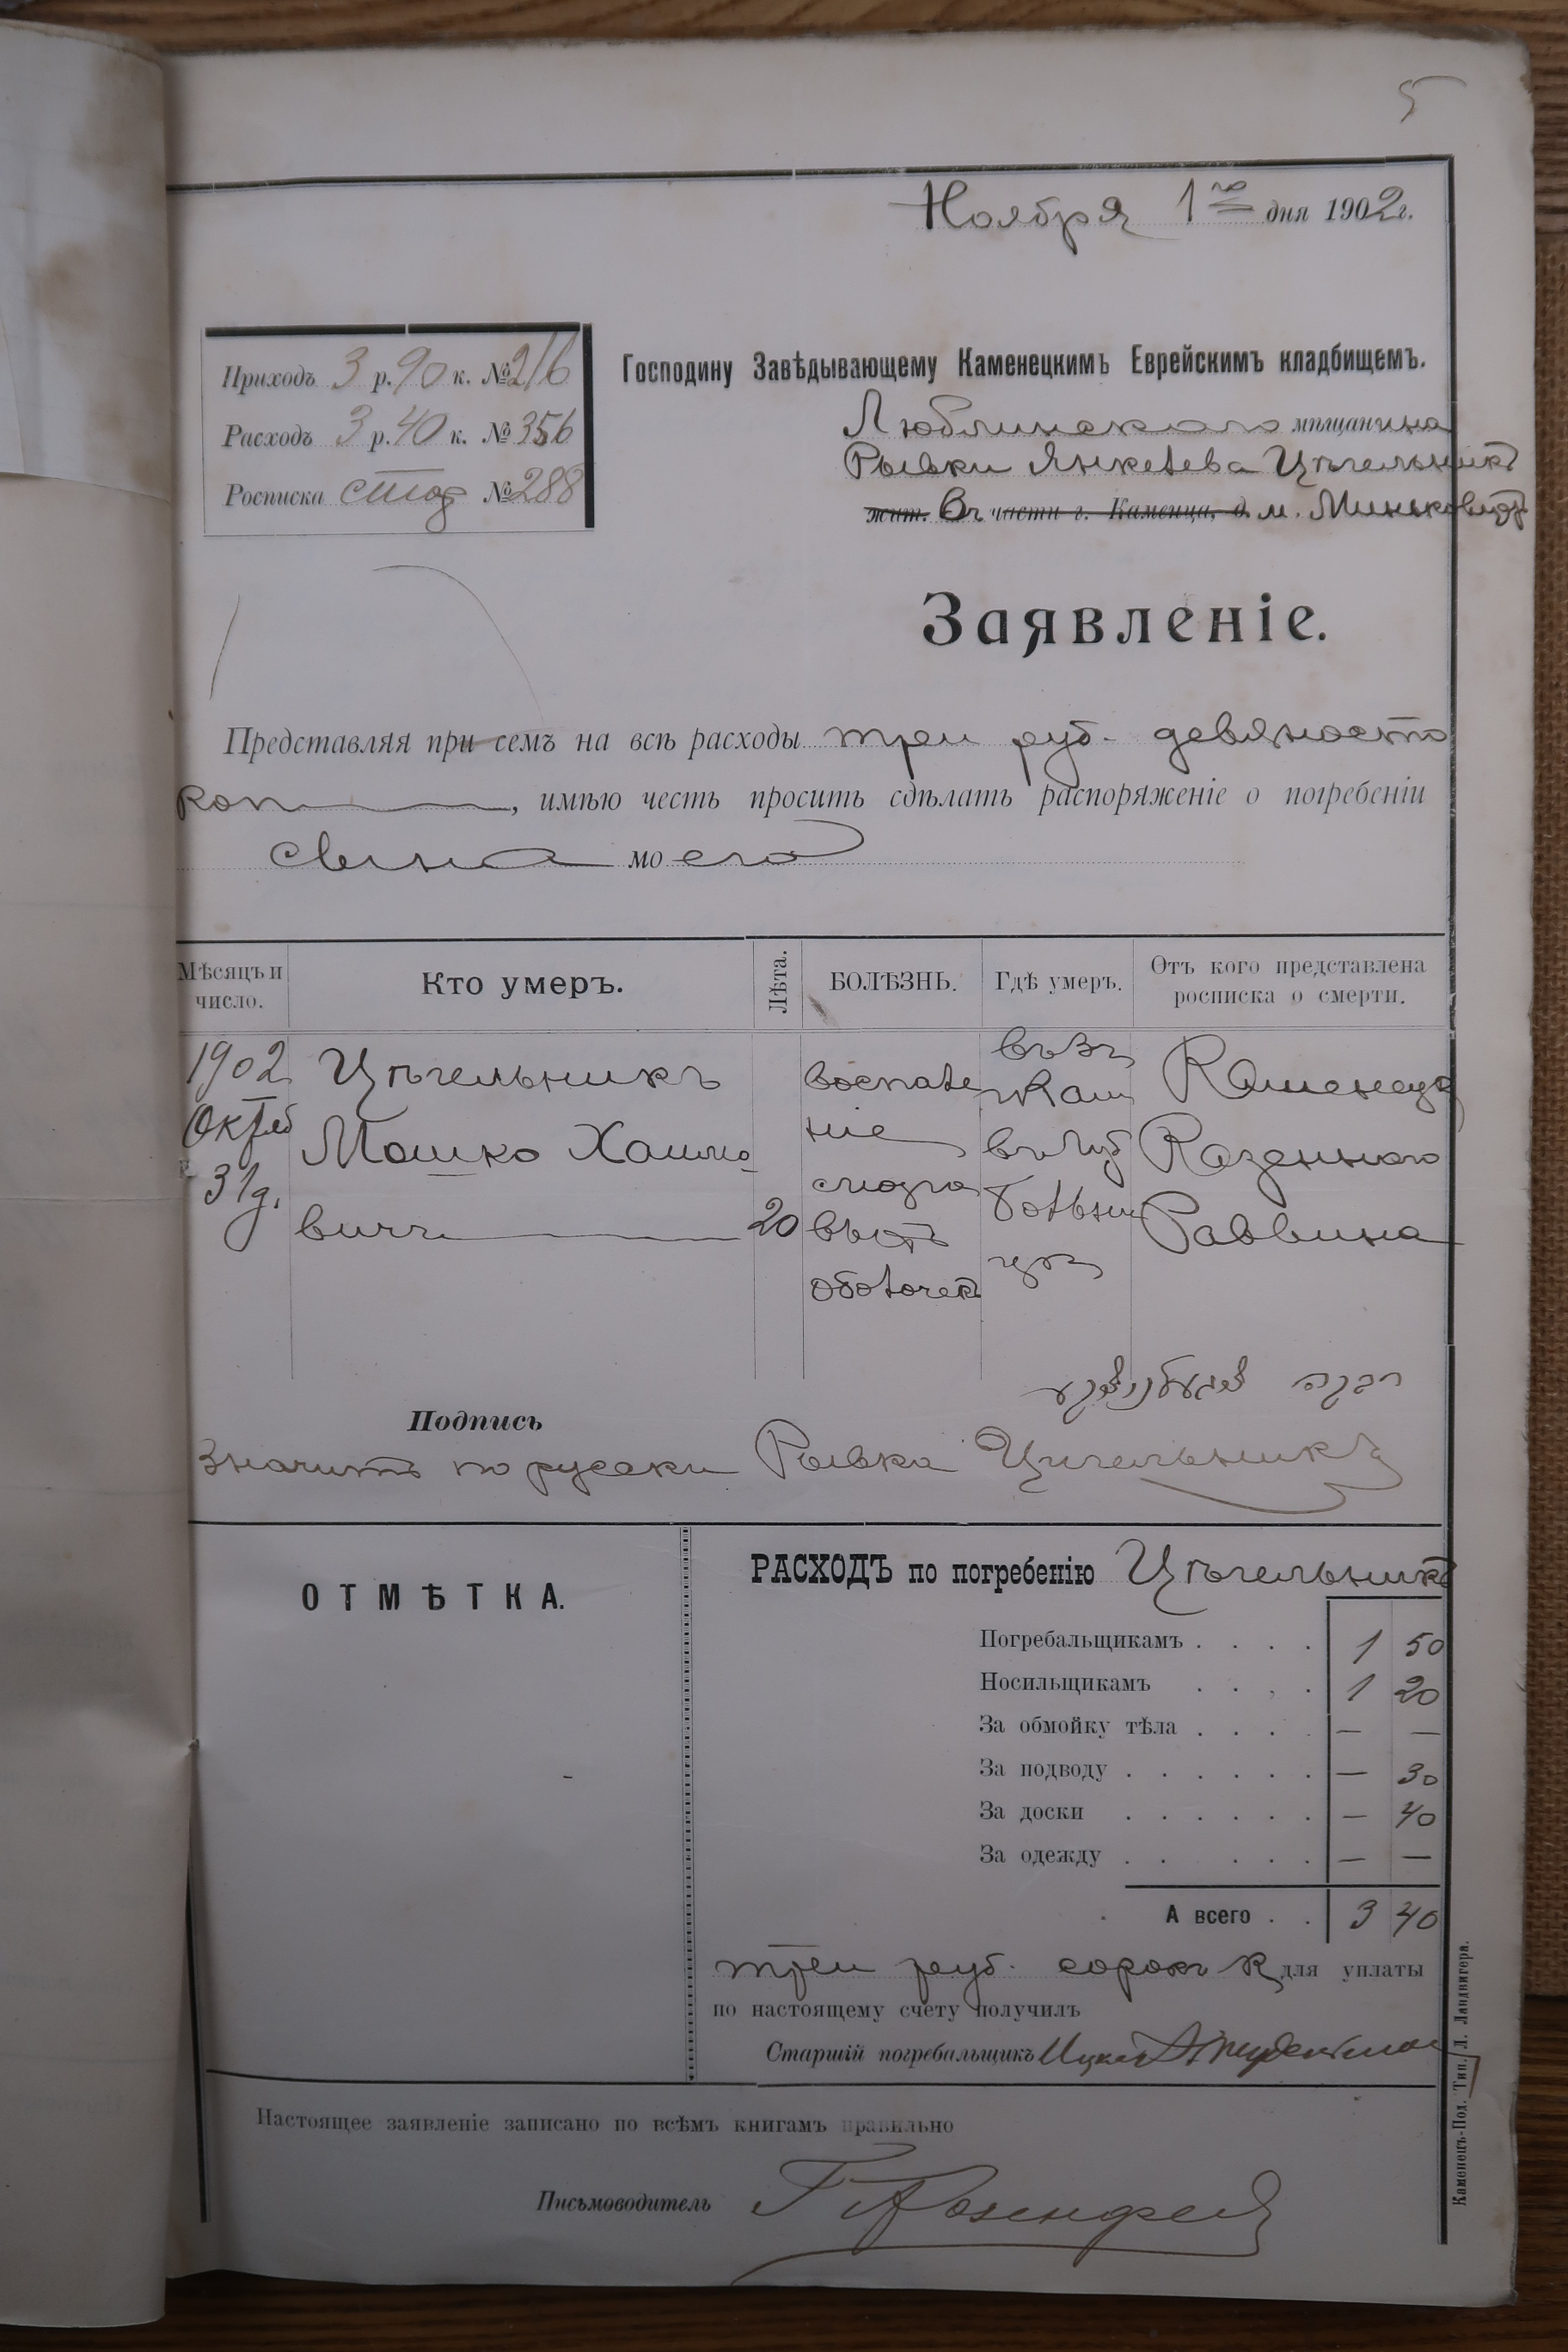 5
Ноября 1го дня 1902г.
Приходъ 3 р. 90 к. № 216
Расходъ 3 р. 40 к. № 356
Росписка № 288
Господину Завѣдывающему Каменецкимъ Еврейскимъ кладбищемъ.
Люблинского мѣщанина
Рывки Янкелева Цѣгельникъ
жит. въ части г. Каменца, д. м. Миньковцы
Заявленіе.
Представляя при семъ на всѣ расходы три руб. девяносто
коп, имѣю честь просить сдѣлать распоряженіе о погребеніи
сына моего
Мѣсяцъ и число.
Кто умеръ.
Лѣта.
БОЛѢЗНЬ.
Гдѣ умеръ.
Отъ кого представлена росписка о смерти.
1902 Октяб 31д.
Цѣгельникъ
Мошко Хаимо
вичъ
20
воспале
ніе
мозго
выхъ
оболочекъ
въ Губ
больни
цѣ
Каменецк
Казенного
Раввина
רבקה
Подпись
Значитъ по русски Рывка Цигельникъ
ОТМѢТКА.
РАСХОДЪ по погребенію Цѣгельникъ
Погребальщикамъ . . . . 1 50
Носильщикамъ . . . . 1 20
За обмойку тѣла . . . . — —
За подводу . . . . . . — 30
За доски . . . . . . — 40
За одежду . . . . . . — —
А всего . . 3 40
три руб. сорокъ к для уплаты
по настоящему счету получилъ
Старшій погребальщикъ Ицко
Настоящее заявленіе записано по всѣмъ книгамъ правильно
Письмоводитель Розенфельд
Каменецъ-Под. Тип. Л. Ландвигера.